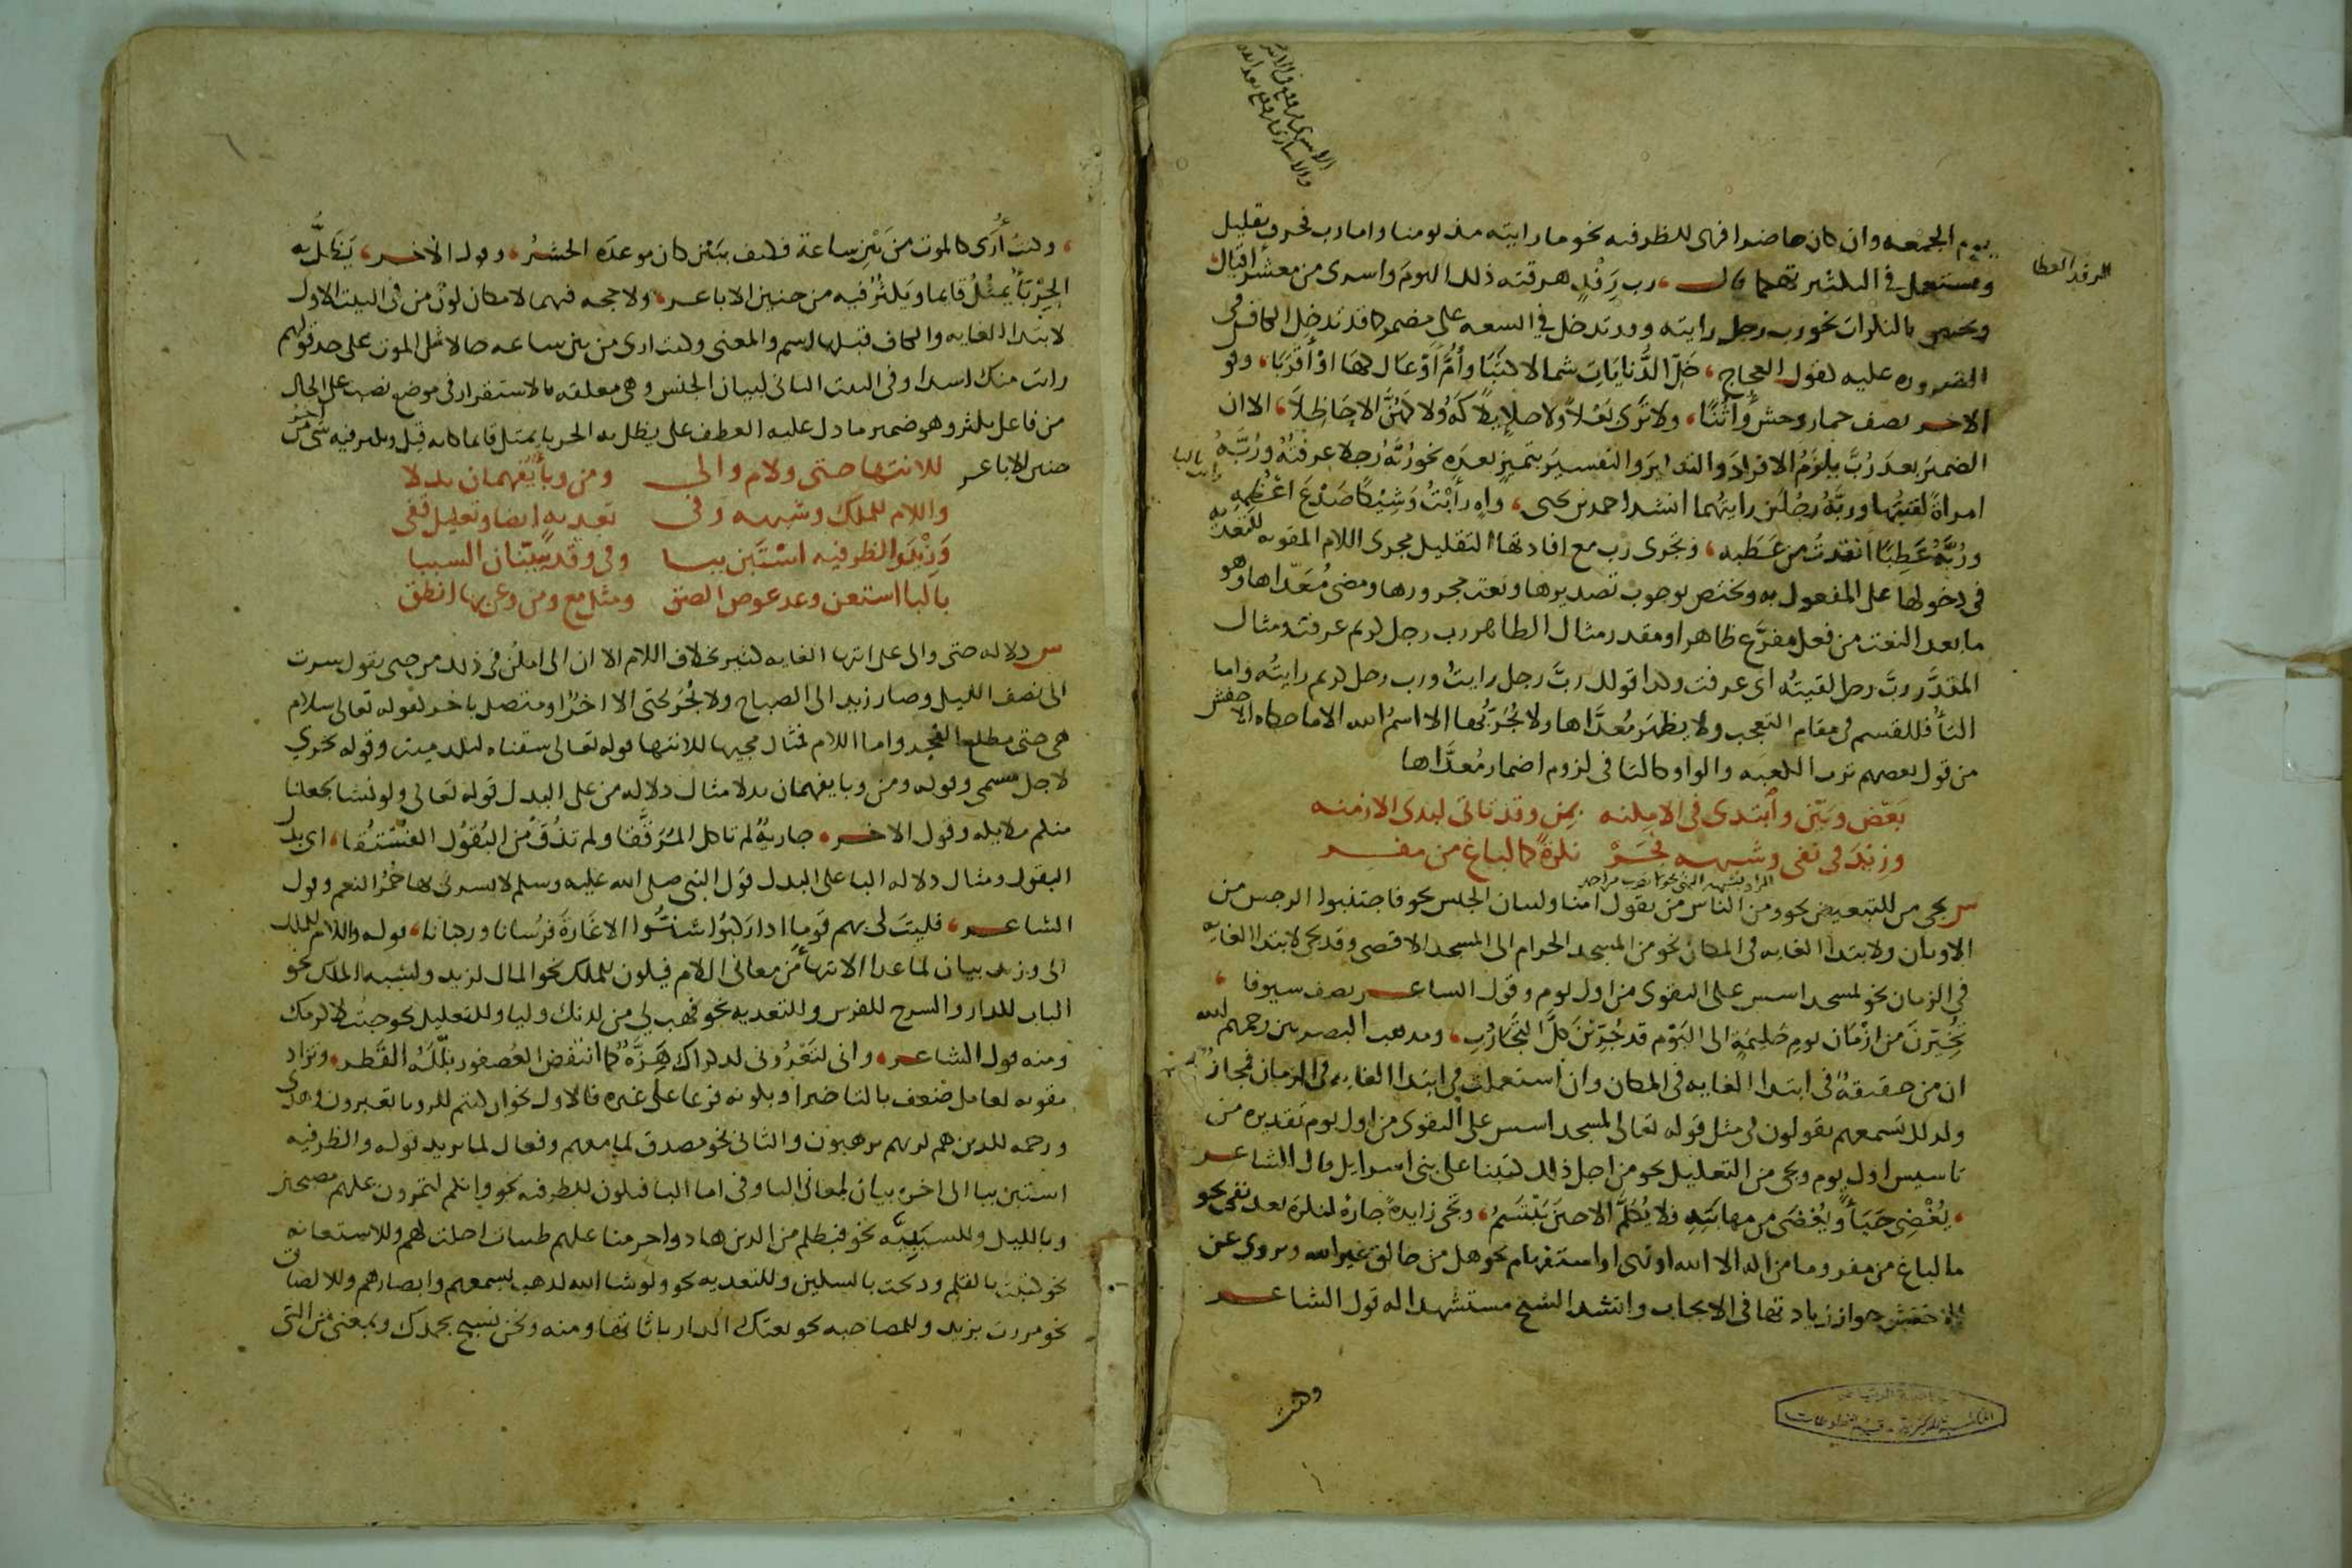 يوم الجمعه وان كان حاضرا فهى للظرفيه نحو ما رايته مذ يومنا واما رب فحرف تقليل
وتستعمل فى التكثير تهكما قال رب رفد هرقته ذلك اليوم واسرى من معشر اقيال
الرفد العطا
ويختص بالنكرات نحو رب رجل رايته وقد تدخل فى السعه على مضمر كما قد تدخل الكاف فى
الضروره عليه كقول العجاج خلّ الذنابات شمالا كثبا وأمّ أوعال كها او أقربا وقو
الاخر يصف حمار وحش وأتنا ولا ترى بعلا ولا حلايلا كه ولا كهن الا حاظلا الا ان
الضمير بعد رب يلزم الافراد والتذكير والتفسير بتمييز بعده نحو ربه رجلا عرفته وربه
امراة لقيتها وربه رجلين رايتهما انشد احمد بن يحيى واه رأبت وشيكا صدع اعظمه
وربه عطبا انقذت من عطبه وتجرى رب مع افادتها التقليل مجرى اللام المقويه للتعديه
فى دخولها على المفعول به وتختص بوجوب تصديرها ونعت مجرورها ومضى معداها وهو
ما بعد النعت من فعل مفرغ ظاهرا او مقدر مثال الظاهر رب رجل كريم عرفت ومثال
المقدر رب رجل لقيته اى عرفت وكذا قولك رب رجل رايت ورب رجل كريم رايته واما
التا فللقسم فى مقام التعجب ولا يظهر معداها ولا تجر بها الا اسم الله الا ما حكاه الاخفش
من قول بعضهم ترب الكعبه والواو كالتا فى لزوم اضمار معداها
بعّض وبيّن وابتدى فى الامكنه بمن وقد تاتى لبدى الازمنه
وزيد فى نفى وشبهه فجر نكرة كما لباغ من مفر
س تجى من للتبعيض نحو ومن الناس من يقول امنا ولبيان الجنس نحو فاجتنبوا الرجس من
الاوثان ولابتدا الغايه فى المكان نحو من المسجد الحرام الى المسجد الاقصى وقد تجى لابتدا الغايه
فى الزمان نحو لمسجد اسس على التقوى من اول يوم وقول الشاعر يصف سيوفا
تخيرن من ازمان يوم حليمة الى اليوم قد جربن كل التجارب ومذهب البصريين رحمهم الله
ان من حقيقة فى ابتدا الغايه فى المكان وان استعملت فى ابتدا الغايه فى الزمان فمجاز
ولذلك تسمعهم يقولون فى مثل قوله تعالى لمسجد اسس على التقوى من اول يوم تقديره من
تاسيس اول يوم وتجى من التعليل نحو من اجل ذلك كتبنا على بنى اسرايل قال الشاعر
يغضى حيا ويغضى من مهابته فلا يكلم الا حين يبتسم وتجى زايدة جارة لنكرة بعد نفى نحو
ما لباغ من مفر وما من اله الا الله او نهى او استفهام نحو هل من خالق غير الله ويروى عن
الاخفش جواز زيادتها فى الايجاب وانشد الشيخ مستشهدا له قول الشاعر
وكنت
وكنت أرى كالموت من بين ساعة فكيف ببين كان موعده الحشر وقول الاخر يظل به
الحربا يمثل قايما ويكثر فيه من حنين الاباعر ولا حجه فيهما لامكان كون من فى البيت الاول
لابتدا الغايه والكاف قبلها اسم والمعنى وكنت ارى من بين ساعه حالا مثل الموت على حد قولهم
رايت منك اسدا وفى البيت الثانى لبيان الجنس وهى معلقه بالاستقرار فى موضع نصب على الحال
من فاعل يكثر وهو ضمير ما دل عليه العطف على يظل به الحربا يمثل قايما كانه قيل ويكثر فيه شى اخر من
حنين الاباعر
للانتها حتى ولام والى ومن وبا يفهمان بدلا
واللام للملك وشبهه وفى تعديه ايضا وتعليل قفى
وزيد والظرفيه استبن ببا وفى وقد يبينان السببا
بالبا استعن وعد عوض الصق ومثل مع ومن وعن بها انطق
س دلاله حتى والى على انتها الغايه كثير بخلاف اللام الا ان الى امكن فى ذلك من حتى تقول سرت
الى نصف الليل وصار زيد الى الصباح ولا يجر بحتى الا اخر او متصل باخر كقوله تعالى سلام
هى حتى مطلع الفجر واما اللام فمثال مجيها للانتها قوله تعالى سقناه لبلد ميت وقوله تجرى
لاجل مسمى وقوله ومن وبا يفهمان بدلا مثال دلاله من على البدل قوله تعالى ولو نشا لجعلنا
منكم ملايكه وقول الاخر جارية لم تاكل المرققا ولم تذق من البقول الفستقا اى بدل
البقول ومثال دلاله البا على البدل قول النبى صلى الله عليه وسلم لا يسرنى بها حمر النعم وقول
الشاعر فليت لى بهم قوما اذا ركبوا شنوا الاغارة فرسانا وركبانا قوله واللام للملك
الى وزيد بيان لما عدا الانتها من معانى اللام فيكون للملك نحو المال لزيد ولشبه الملك نحو
الباب للدار والسرج للفرس وللتعديه نحو فهب لى من لدنك وليا وللتعليل نحو جيت لاكرمك
ومنه قول الشاعر وانى لتعرونى لذكراك هزة كما انتفض العصفور بلله القطر وتزاد
مقويه لعامل ضعف بالتاخير او بكونه فرعا على غيره فالاول نحو ان كنتم للرويا تعبرون وهدى
ورحمه للذين هم لربهم يرهبون والثانى نحو مصدق لما معهم وفعال لما يريد قوله والظرفيه
استبن ببا الى اخره بيان لمعانى البا وفى اما البا فتكون للظرفيه نحو وانكم لتمرون عليهم مصبحين
وبالليل وللسببية نحو فبظلم من الذين هادوا حرمنا عليهم طيبات احلت لهم وللاستعانه
نحو كتبت بالقلم وذبحت بالسكين وللتعديه نحو ولو شا الله لذهب بسمعهم وابصارهم وللالصاق
نحو مررت بزيد وللمصاحبه نحو بعتك الدار باثاثها ومنه ونحن نسبح بحمدك وبمعنى من التى